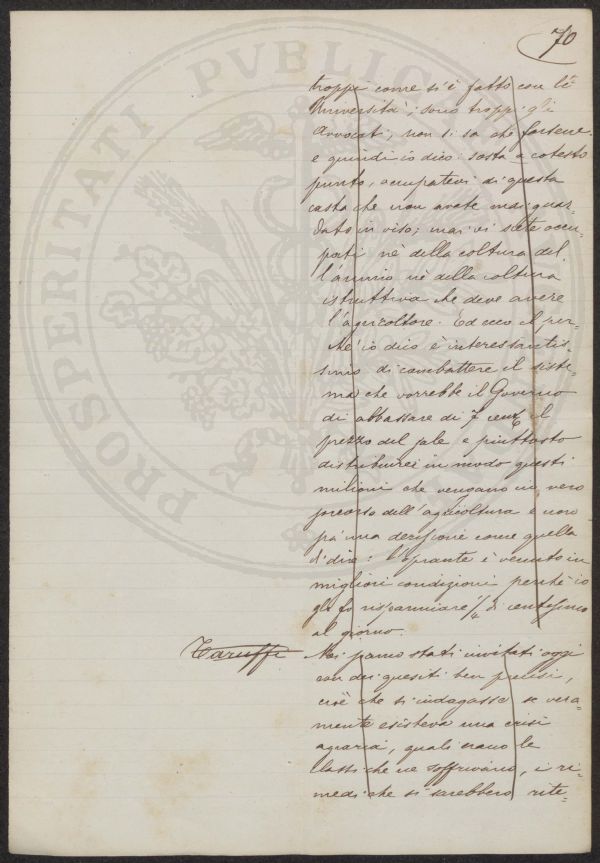 70
troppi come si è fatto con le
Università; sono troppi gli
Avvocati, non si sa che farsene
e quindi io dico: sosta a cotesto
punto, occupatevi di questa
casta che non avete mai guar-
dato in viso; mai vi siete occu-
pati nè della coltura del
l'animo nè della coltura
istruttiva che deve avere
l'agricoltore. Ed ecco il per-
chè io dico è interessantis-
simo di combattere il siste-
ma che vorrebbe il Governo
di abbassare di 7 cent. il
prezzo del sale e piuttosto
distribuirei in modo questi
milioni che vengano in vero
soccorso dell'agricoltura e non
sia una derisione come quella
di dire: l'oprante è venuto in
migliori condizioni perchè io
gli fo risparmiare 1/4 di centesimo
al giorno.
Taruffi Noi siamo stati invitati oggi
con dei quesiti ben precisi,
cioè che si indagasse se vera-
mente esisteva una crisi
agraria, quali erano le
classi che ne soffrivano, i ri-
medi che si sarebbero rite-
PROSPERITATI PVBLIC